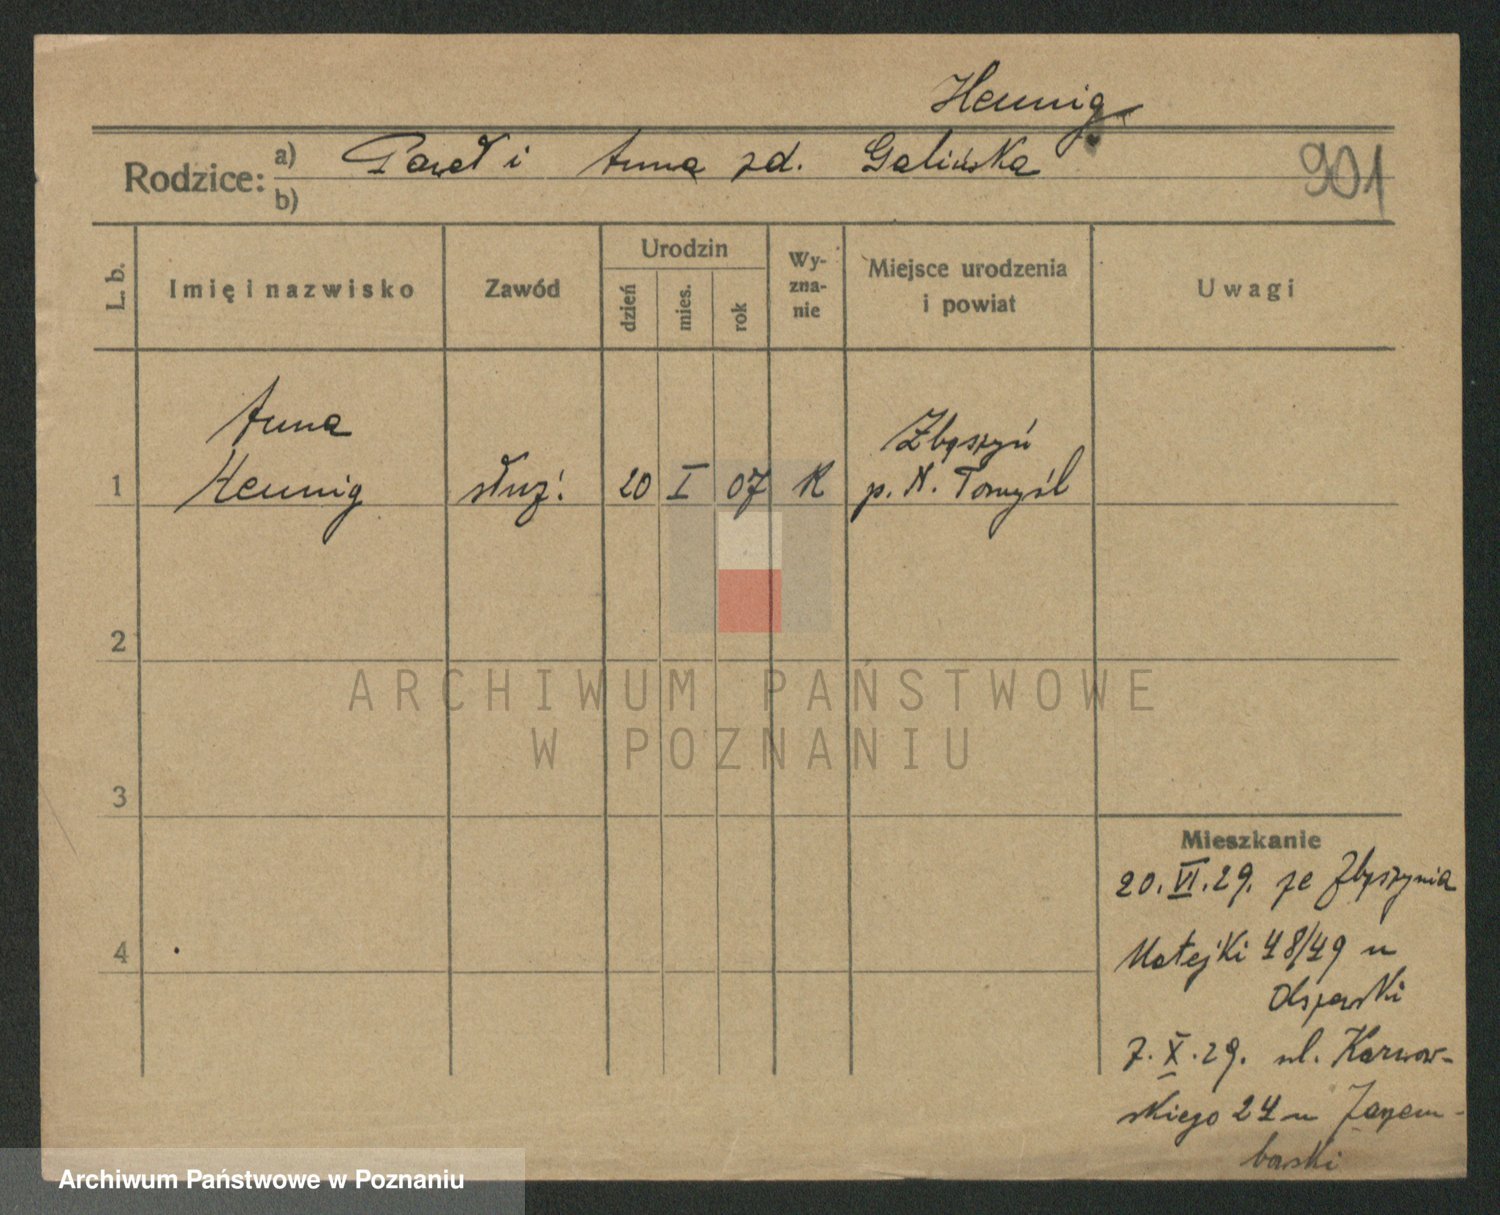 Hennig
Rodzice: a) Paweł i Anna zd. Galińska
b)
901
L. b.
Imię i nazwisko
Zawód
Urodzin
dzień
mies.
rok
Wy-
zna-
nie
Miejsce urodzenia
i powiat
Uwagi
Anna
Zbąszyń
1 Hennig służ. 20 I 07 K p. N. Tomyśl
2
ARCHIWUM PAŃSTWOWE
W POZNANIU
3
Mieszkanie
20.VI.29. ze Zbąszynia
4
Matejki 48/49 u
Olszewski
7.X.29. ul. Karwow-
skiego 24 u
Archiwum Państwowe w Poznaniu